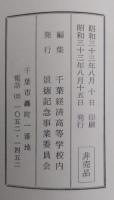 昭和三十三年八月十日 印刷
昭和三十三年八月十五日 発行
非売品
編集 千葉経済高等学校内
発行 頌徳記念事業委員会
千葉市轟町一番地
電話(02)一〇五二・一四五二